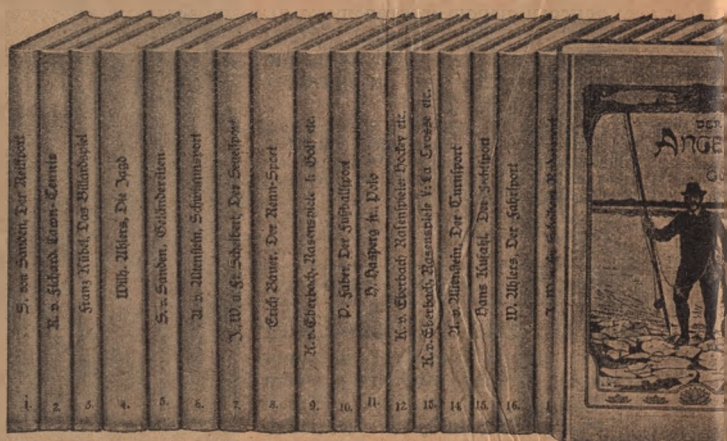 S. von Sanden, Der Reitsport
1.
R. v. Fichard, Lawn-Tennis
2.
Franz Kübel, Das Billardspiel
3.
Wilh. Ahlers, Die Jagd
4.
S. v. Sanden, Geländereiten
5.
A. v. Altenstein, Schwimmsport
6.
J. W. u. Fr. Scheibert, Der Segelsport
7.
Erich Bauer, Der Renn-Sport
8.
K. v. Eberbach, Rasenspiele I: Golf etc.
9.
P. Faber, Der Fußballsport
10.
H. Hasperg jr., Polo
11.
K. v. Eberbach Rasenspiele: Hockey etc.
12
K. v. Eberbach, Rasenspiele V: La Crosse etc.
13.
A. v. Altenstein, Der Turnsport
14.
Hans Kufahl, Der Fechtsport
15.
W. Ahlers, Der Fahrsport
16.
DER
ANGE